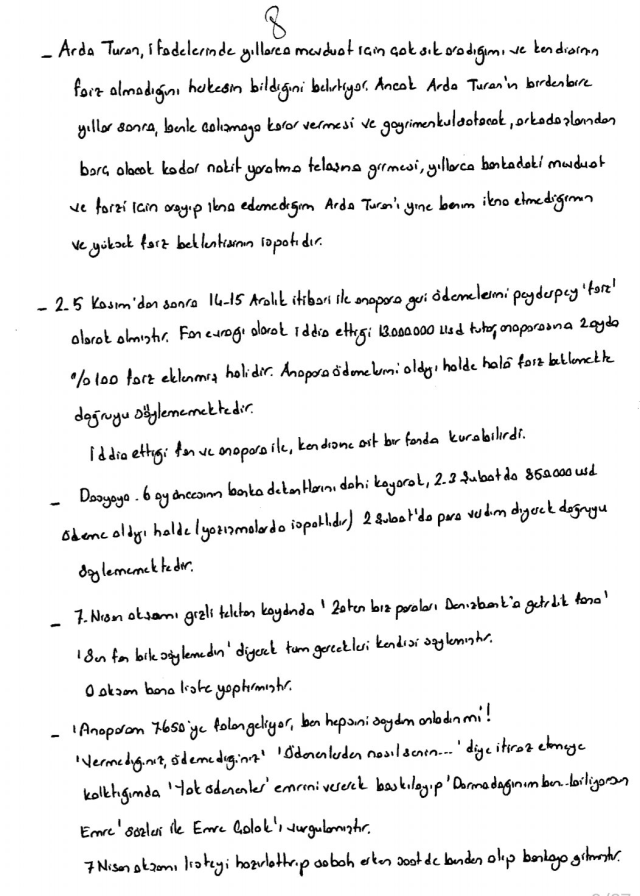 8
- Arda Turan, ifadelerinde yıllarca mevduat için çok sık aradığımı ve kendisinin
faiz almadığını herkesin bildiğini belirtiyor. Ancak Arda Turan'ın birdenbire
yıllar sonra, benle çalışmaya karar vermesi ve gayrimenkul satacak, arkadaşlarından
borç alacak kadar nakit yaratma telaşına girmesi, yıllarca bankadaki mevduat
ve faizi için arayıp ikna edemediğim Arda Turan'ı yine benim ikna etmediğimin
ve yüksek faiz beklentisinin ispatıdır.
- 2.5 Kasım'dan sonra 14-15 Aralık itibari ile anapara geri ödemelerini peyderpey 'faiz'
olarak almıştır. Fon evrağı olarak iddia ettiği 13.000.000 usd tutar, anaparasına 2 ayda
%100 faiz eklenmiş halidir. Anapara ödemelerini aldığı halde hala faiz beklemekte
doğruyu söylememektedir.
İddia ettiği fon ve anapara ile, kendisine ait bir fonda kurabilirdi.
- Dosyaya . 6 ay öncesinin banka dekontlarını dahi koyarak, 2.3 Şubatda 850.000 usd
ödeme aldığı halde (yazışmalarda ispatlıdır) 2 Şubat'da para verdim diyerek doğruyu
söylememektedir.
- 7. Nisan akşamı gizli telefon kaydında ' Zaten biz paraları Denizbank'a getirdik fona'
'Sen fon bile söylemedin' diyerek tüm gerçekleri kendisi söylemiştir.
O akşam bana liste yaptırmıştır.
- 'Anaparam 7650'ye falan geliyor, ben hepsini saydım anladın mı'!
'Vermediğiniz, ödemediğiniz' 'Ödenenlerden nasıl senin...' diye itiraz etmeye
kalktığımda 'Yok ödenenler' emrini vererek baskılayıp 'Darmadağınım ben..biliyorsun
Emre' sözleri ile Emre Çolak'ı vurgulamıştır.
7 Nisan akşamı listeyi hazırlattırıp sabah erken saatde benden alıp bankaya gitmiştir.